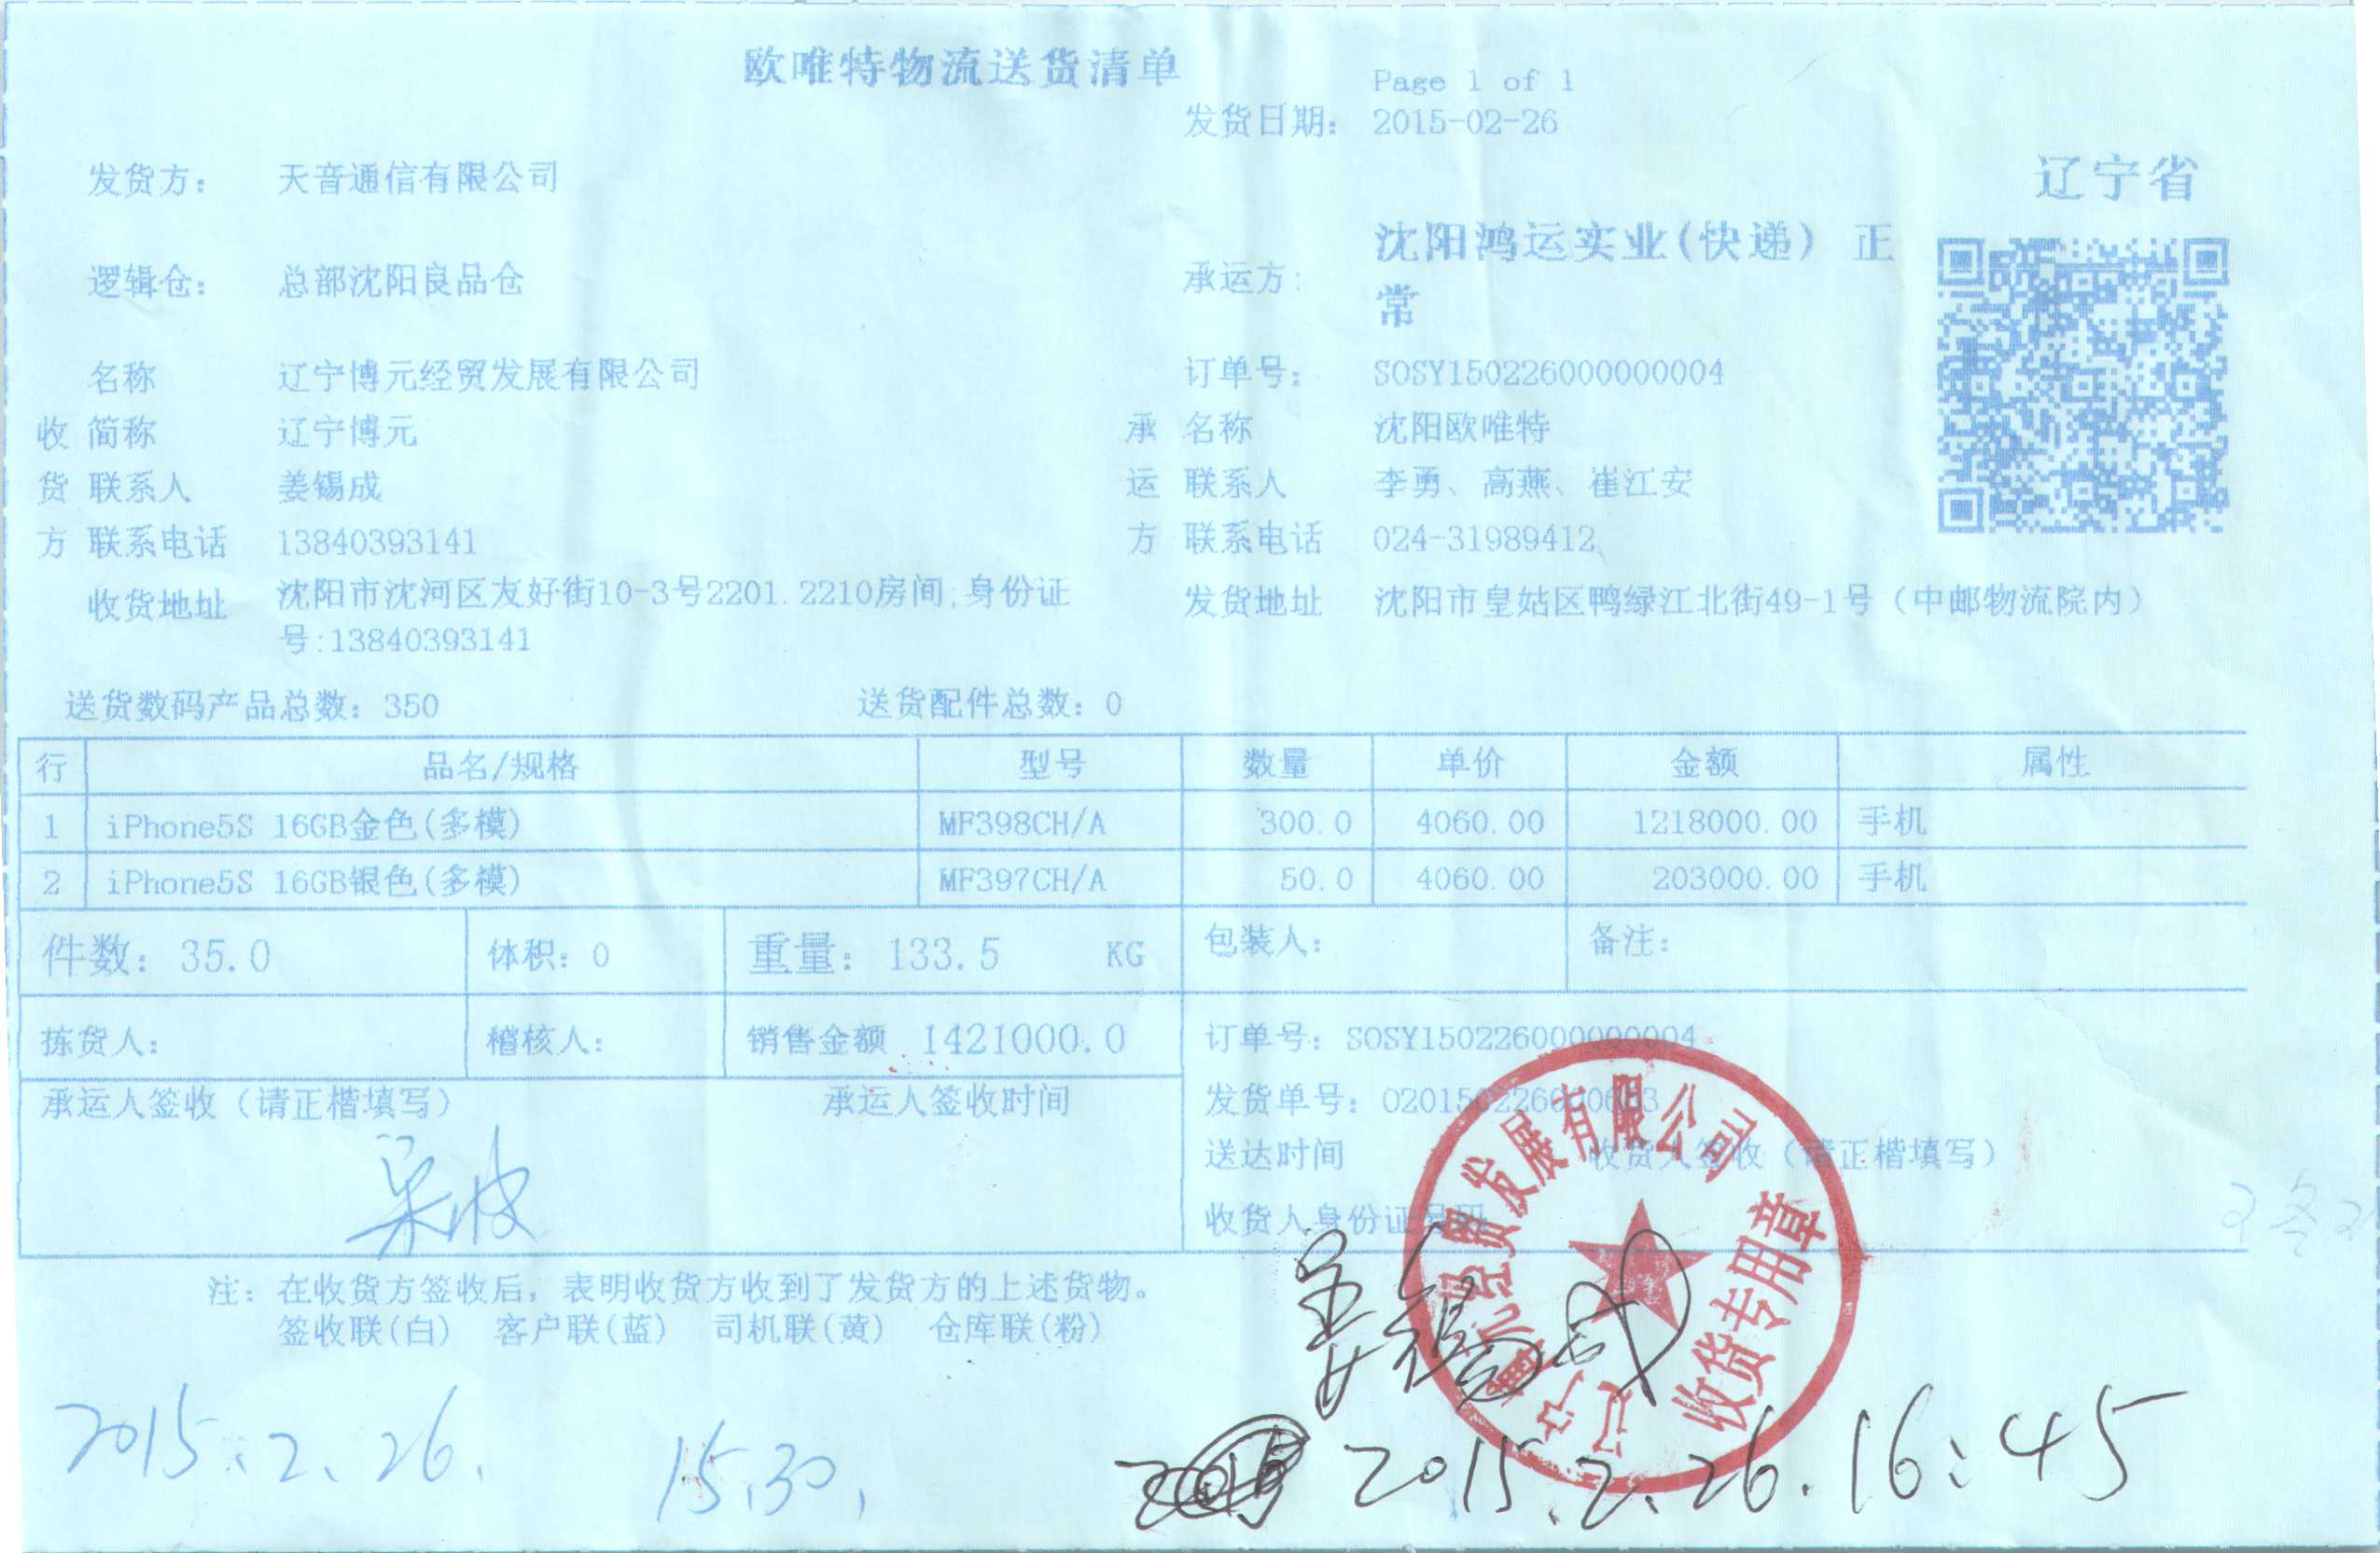 欧唯特物流送货清单
Page 1 of 1
发货日期: 2015-02-26
辽宁省
发货方: 天音通信有限公司
逻辑仓: 总部沈阳良品仓
承运方: 沈阳鸿运实业(快递) 正
常
名称 辽宁博元经贸发展有限公司 订单号: SOSY150226000000004
收 简称 辽宁博元 承 名称 沈阳欧唯特
货 联系人 姜锡成 运 联系人 李勇、高燕、崔江安
方 联系电话 13840393141 方 联系电话 024-31989412
收货地址 沈阳市沈河区友好街10-3号2201.2210房间;身份证
号:13840393141
发货地址 沈阳市皇姑区鸭绿江北街49-1号（中邮物流院内）
送货数码产品总数: 350 送货配件总数: 0
行 品名/规格 型号 数量 单价 金额 属性
1 iPhone5S 16GB金色(多模) MF398CH/A 300.0 4060.00 1218000.00 手机
2 iPhone5S 16GB银色(多模) MF397CH/A 50.0 4060.00 203000.00 手机
件数: 35.0 体积: 0 重量: 133.5 KG 包装人: 备注:
拣货人: 稽核人: 销售金额 1421000.0 订单号: SOSY150226000000004
承运人签收（请正楷填写） 承运人签收时间
发货单号:
送达时间 收货人签收（请正楷填写）
收货人身份证号码
辽宁博元经贸发展有限公司
收货专用章
姜锡成
注: 在收货方签收后，表明收货方收到了发货方的上述货物。
签收联(白) 客户联(蓝) 司机联(黄) 仓库联(粉)
2015.2.26. 15.30.
2015.2.26.16:45